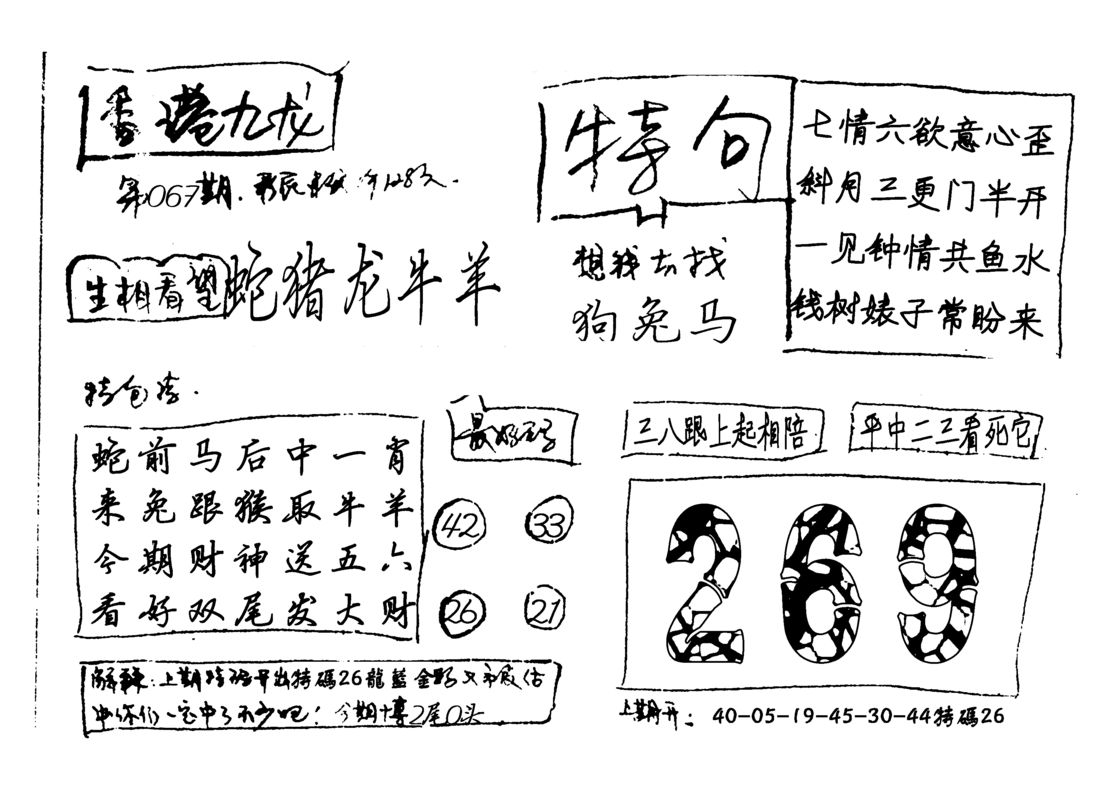 九龙
第067期.
生相看望蛇猪龙牛羊
特句
想我去找
狗兔马
七情六欲意心歪
斜月三更门半开
一见钟情共鱼水
钱树婊子常盼来
蛇前马后中一肖
来兔跟猴取牛羊
今期财神送五六
看好双尾发大财
42 33
26 21
三八跟上起相陪
平中二三看死它
269
上期特码开出特碼26龍藍
你们一定中了不少吧! 今期博2尾0头
上期开: 40-05-19-45-30-44特碼26